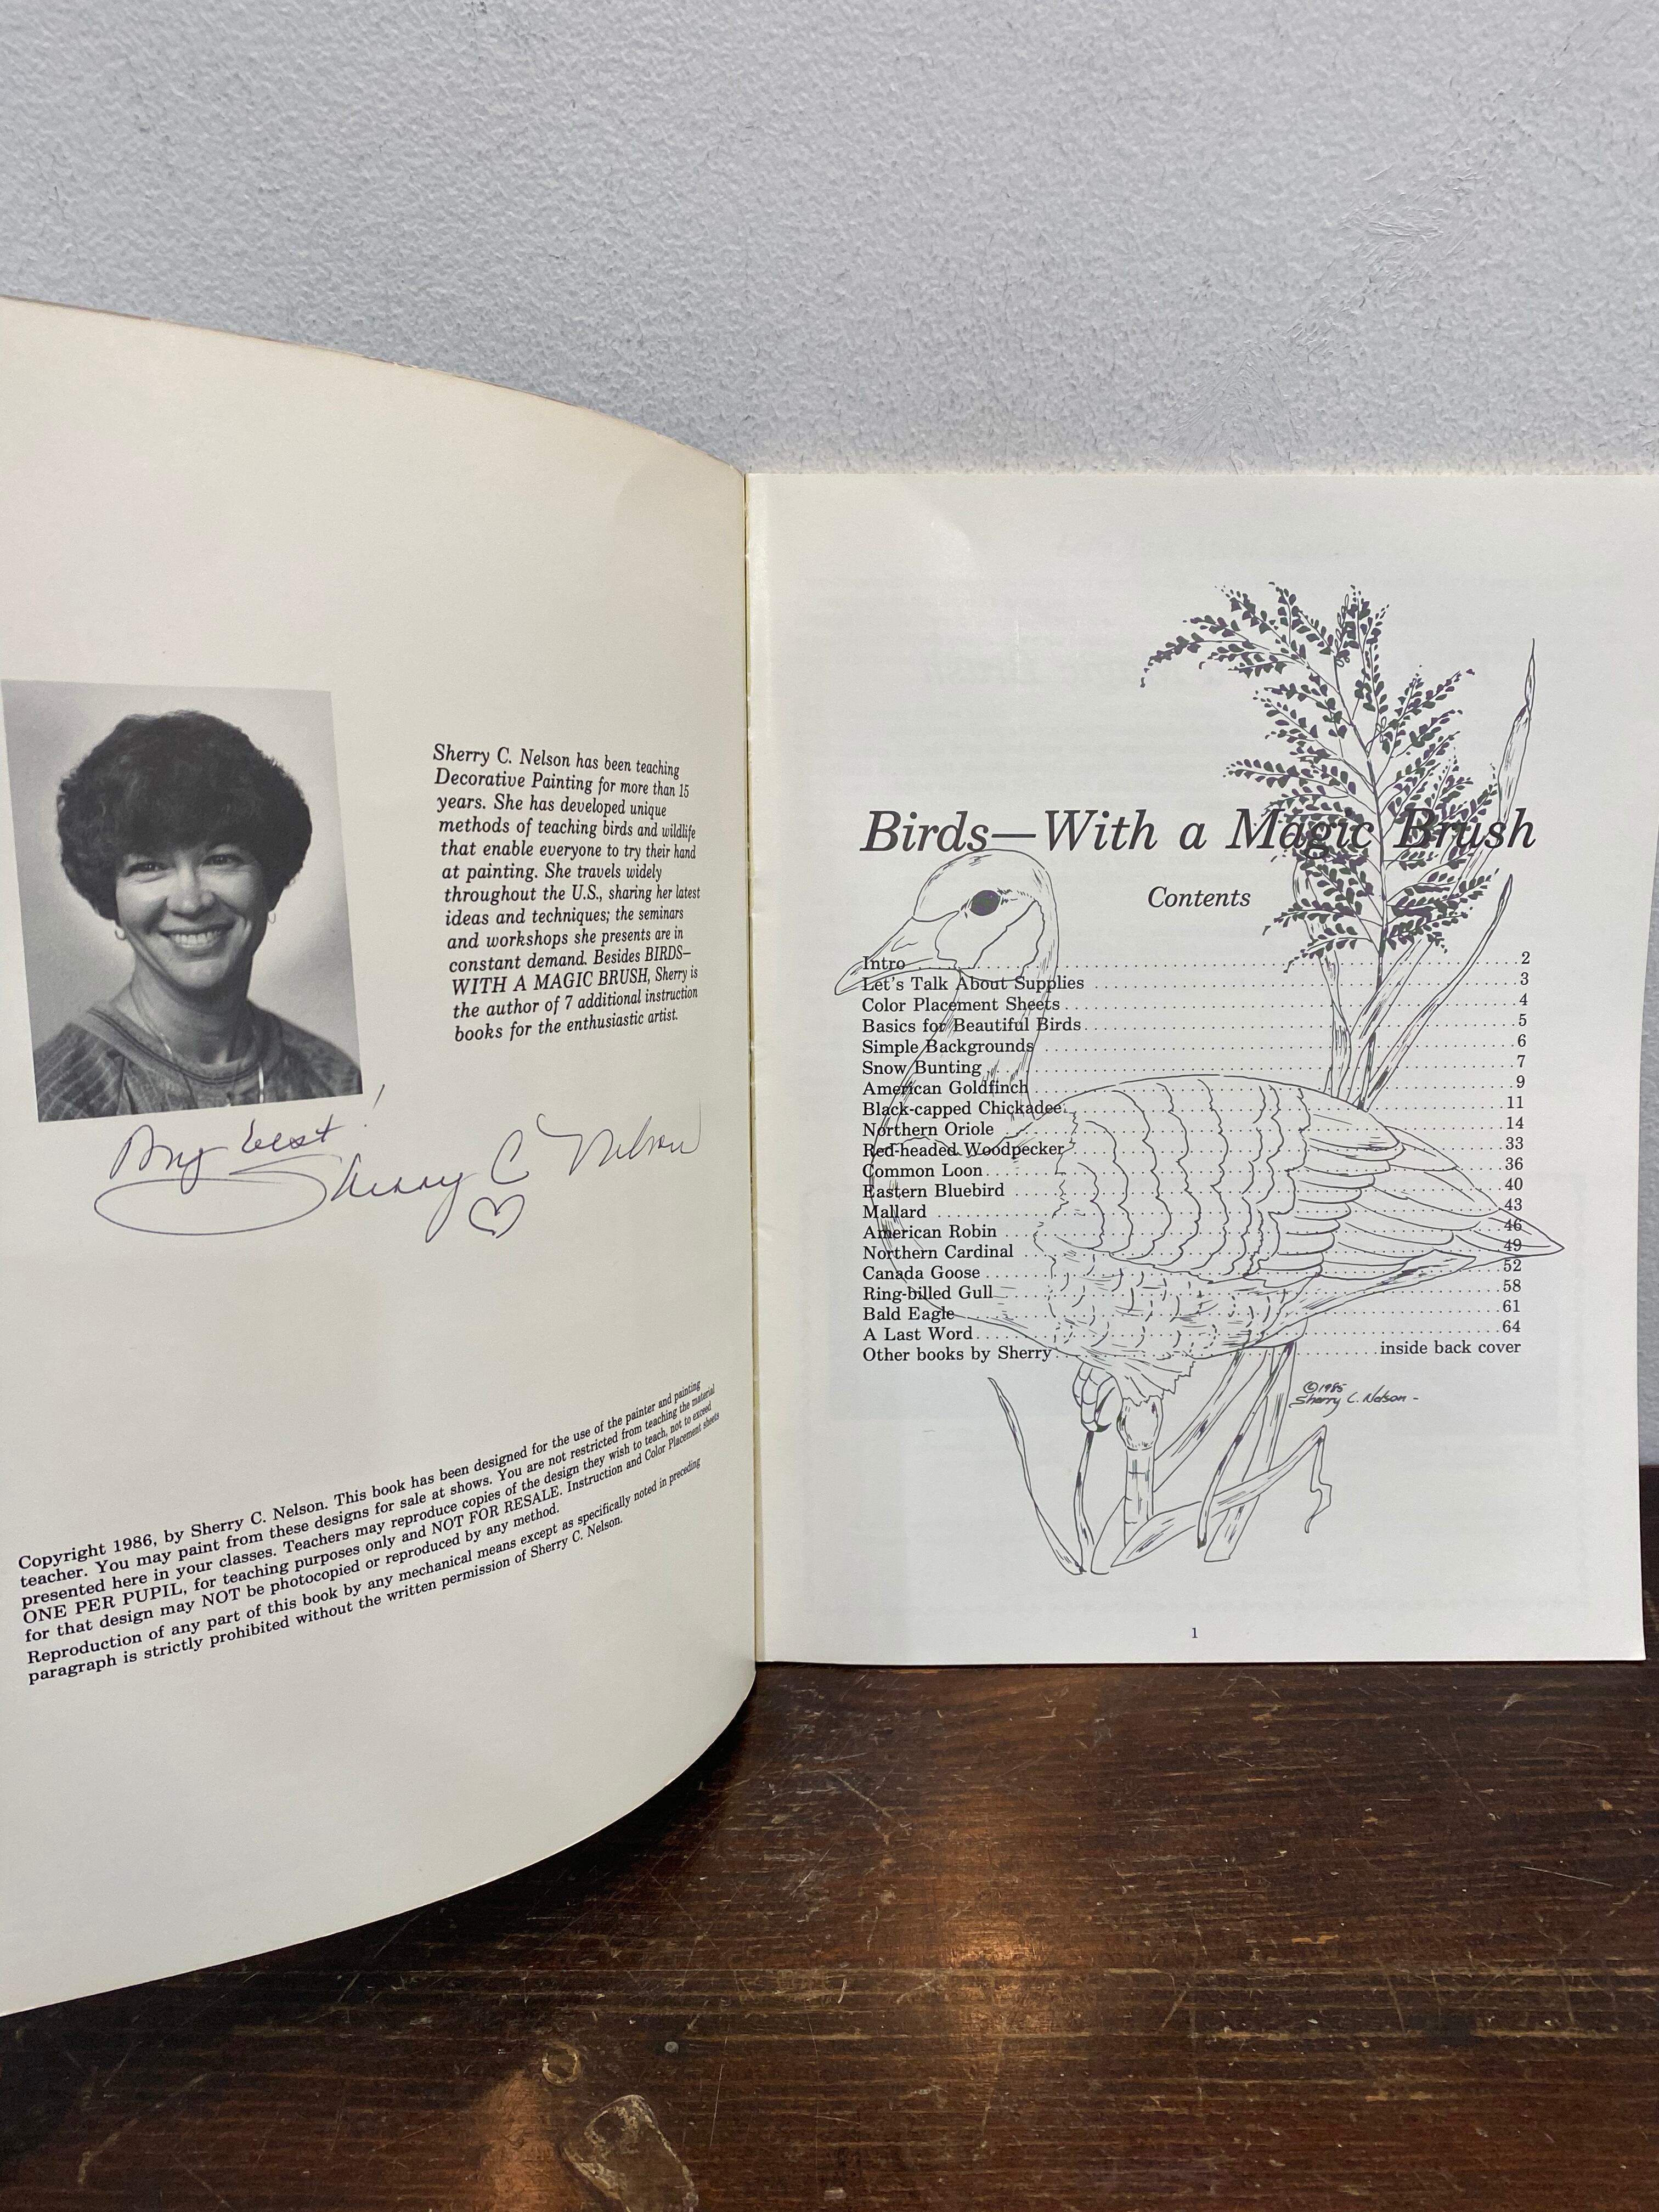 Sherry C. Nelson has been teaching
Decorative Painting for more than 15
years. She has developed unique
methods of teaching birds and wildlife
that enable everyone to try their hand
at painting. She travels widely
throughout the U.S., sharing her latest
ideas and techniques; the seminars
and workshops she presents are in
constant demand. Besides BIRDS—
WITH A MAGIC BRUSH, Sherry is
the author of 7 additional instruction
books for the enthusiastic artist.
My best!
Sherry C Nelson
Copyright 1986, by Sherry C. Nelson. This book has been designed for the use of the painter and painting
teacher. You may paint from these designs for sale at shows. You are not restricted from teaching the material
presented here in your classes. Teachers may reproduce copies of the design they wish to teach, not to exceed
ONE PER PUPIL, for teaching purposes only and NOT FOR RESALE. Instruction and Color Placement sheets
for that design may NOT be photocopied or reproduced by any method.
Reproduction of any part of this book by any mechanical means except as specifically noted in preceding
paragraph is strictly prohibited without the written permission of Sherry C. Nelson.
Birds—With a Magic Brush
Contents
Intro 2
Let's Talk About Supplies 3
Color Placement Sheets 4
Basics for Beautiful Birds 5
Simple Backgrounds 6
Snow Bunting 7
American Goldfinch 9
Black-capped Chickadee 11
Northern Oriole 14
Red-headed Woodpecker 33
Common Loon 36
Eastern Bluebird 40
Mallard 43
American Robin 46
Northern Cardinal 49
Canada Goose 52
Ring-billed Gull 58
Bald Eagle 61
A Last Word 64
Other books by Sherry inside back cover
©1985
Sherry C. Nelson -
1